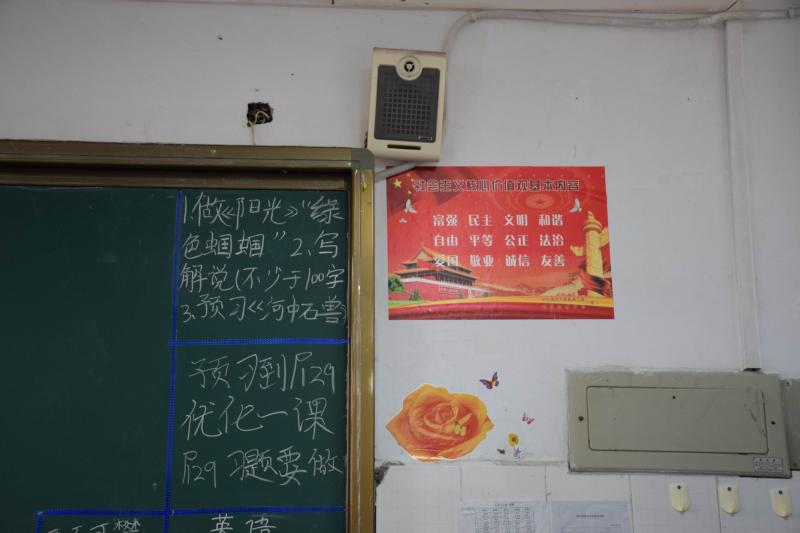 1.做《阳光》“绿
色蝈蝈”2、写
解说(不少于100字
3.预习《河中石兽》
预习到P29
优化一课
P29习题要做
英语
社会主义核心价值观基本内容
富强 民主 文明 和谐
自由 平等 公正 法治
爱国 敬业 诚信 友善